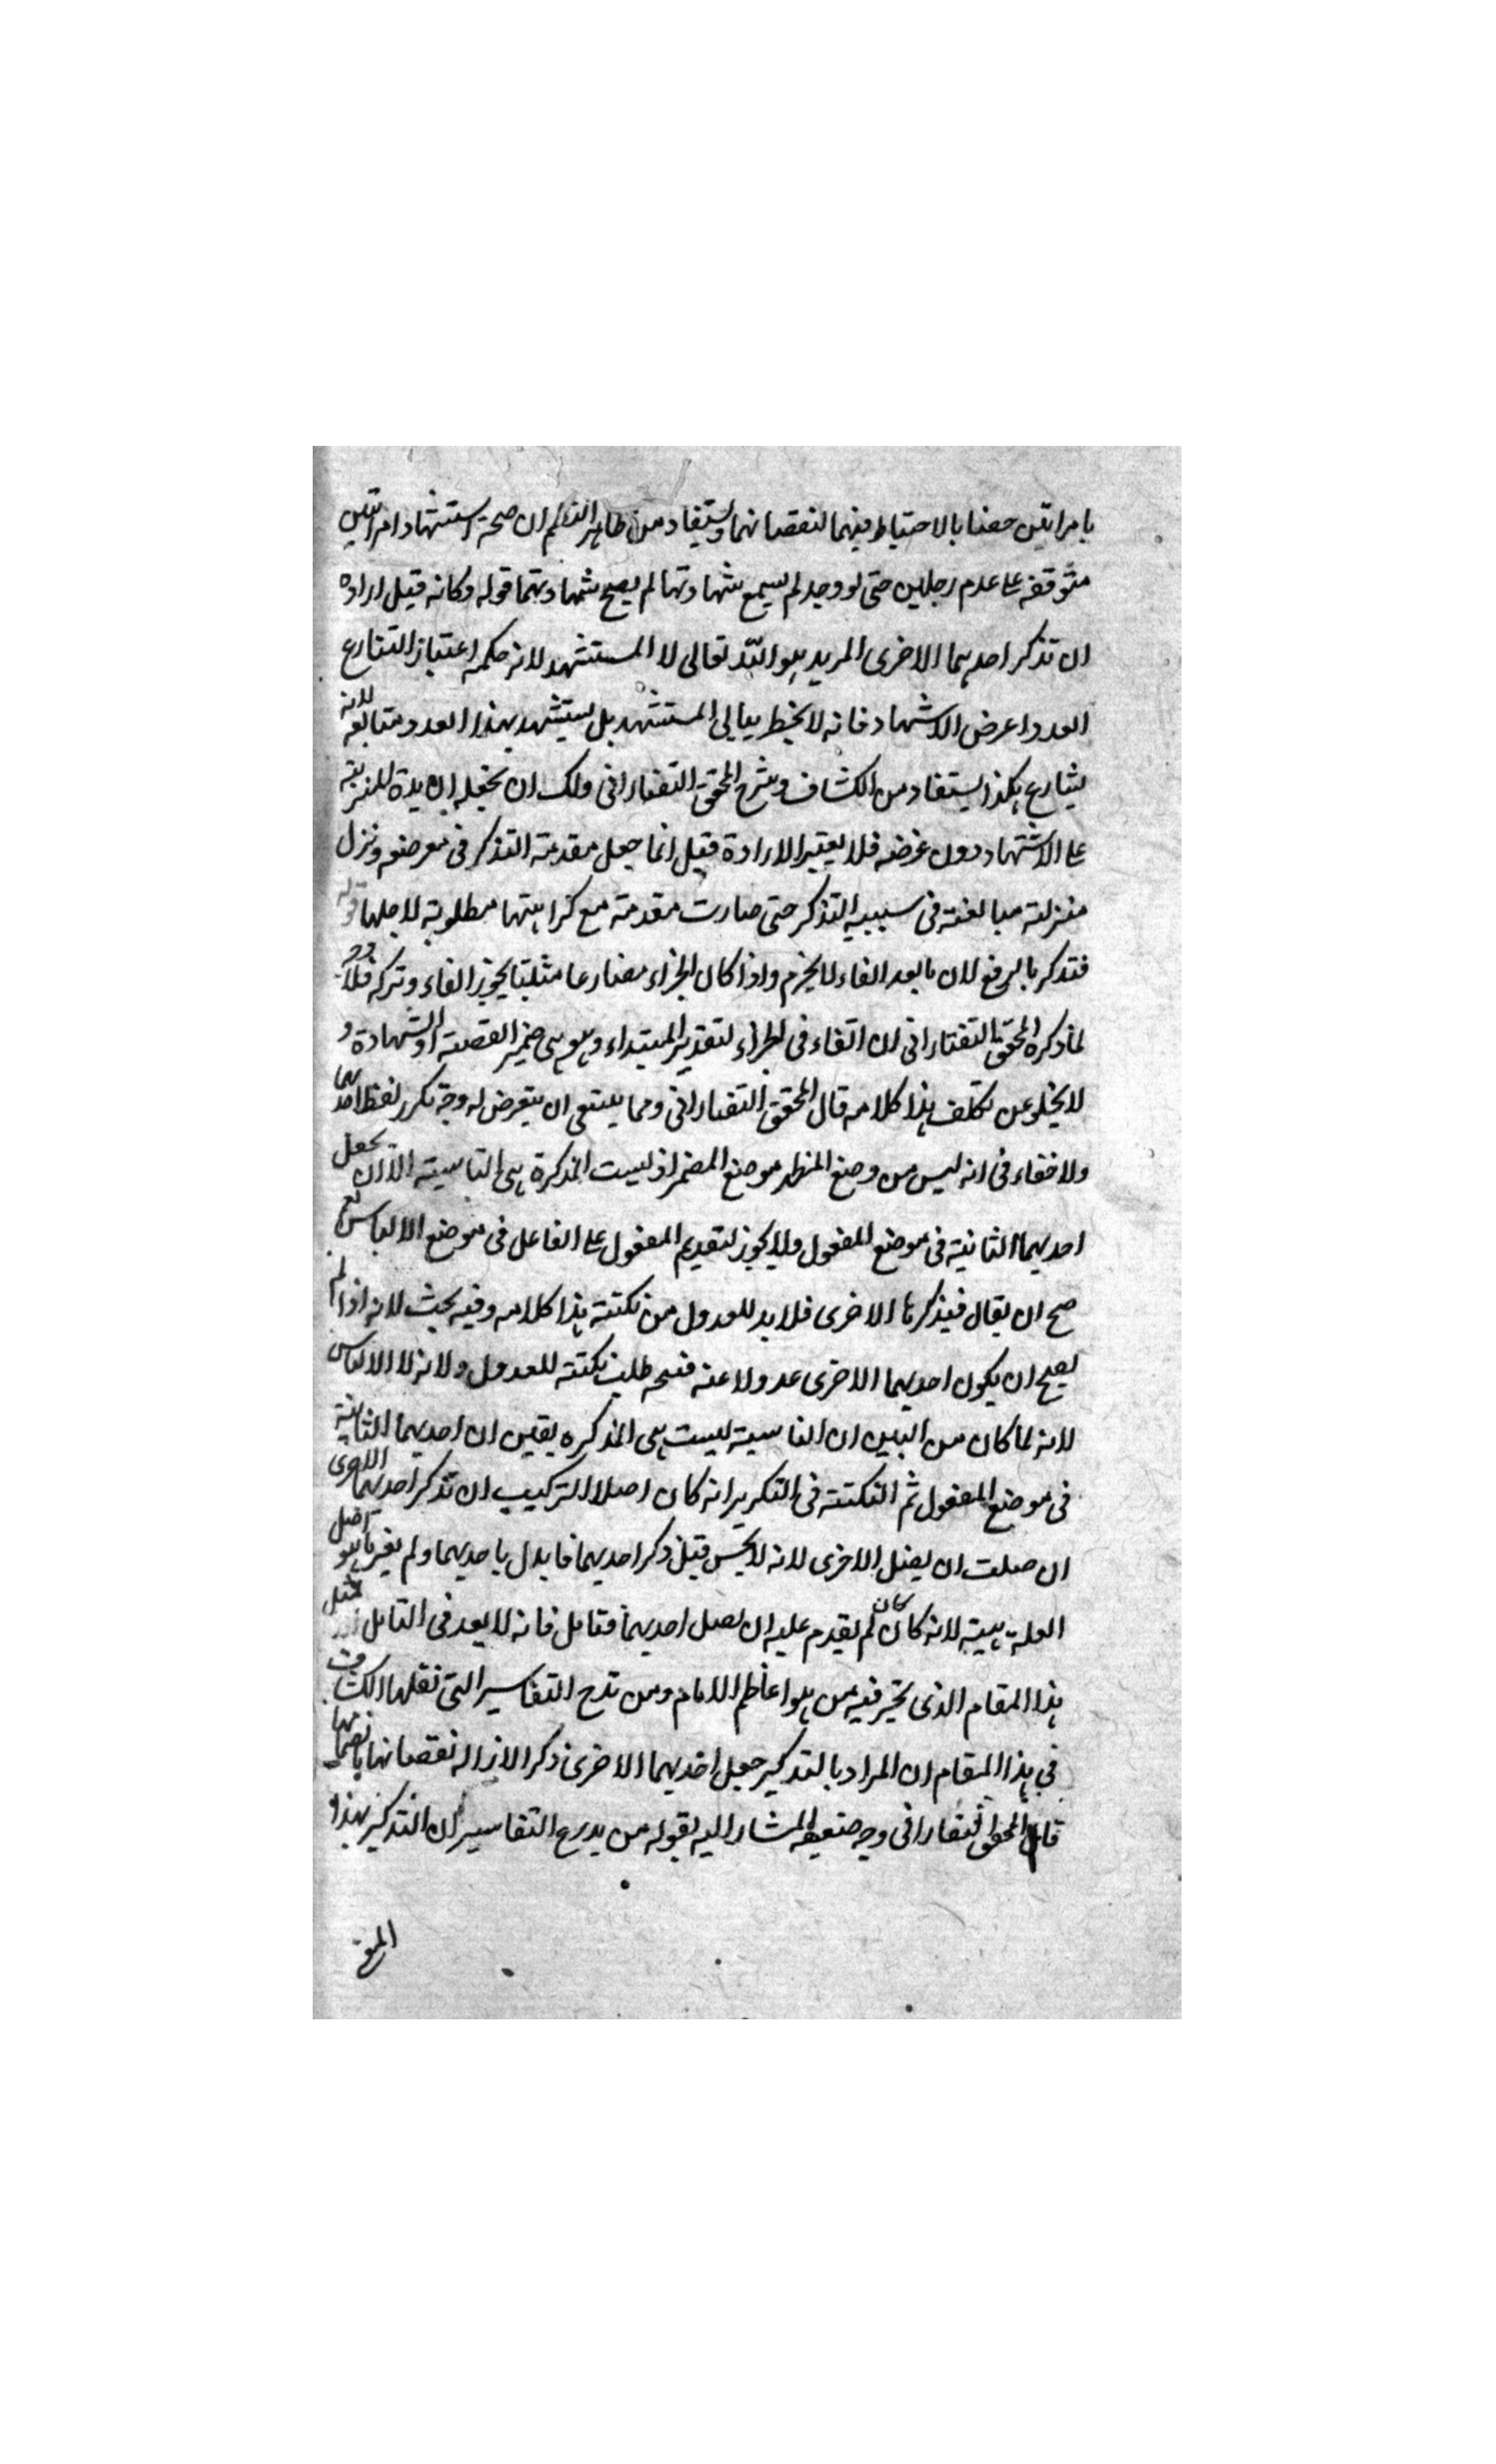 بامراتين حضنا بالاحتياط فيهما لنقصانهما ويستفاد من ظاهر النظم ان صحة استشهاد امراتين
متوقفة على عدم رجلين حتى لو وجد لم يسمع شهادتهما لم يصح شهادتهما قوله وكانه قيل ارادة
ان تذكر احديهما الاخرى المريد هو الله تعالى لا المستشهد لانه حكمه اعتبار الشارع
العدد اعرض الاشهاد فانه لا يخطر ببال المستشهد بل يستشهد بهذا العدد متابعة لانه
بشارع هكذا يستفاد من الكشاف وشرح المحقق التفتازانى ولك ان تجعله
على الاستشهاد دون غرضه فلا يعتبر الارادة قيل انما جعل مقدمة التذكر فى معرضه ونزل
منزلته مبالغة فى سببية التذكر حتى صارت مقدمته مع كراهيتها مطلوبة لاجلها قوله
فتذكر بالرفع لان ما بعد الفاء لا يجزم واذا كان الجزاء مضارعا مثبتا يجوز الفاء وتركه فلا
لما ذكره المحقق التفتازانى ان الفاء فى الجزاء لتقدير المبتداء وهو هى ضمير القصة او الشهادة و
لا يخلو عن تكلف هذا كلامه قال المحقق التفتازانى ومما ينبغى ان يتعرض له وجه تكرر لفظ احديهما
ولا خفاء فى انه ليس من وضع المظهر موضع المضمر اذ ليست المذكرة هى الناسية الا ان يجعل
احديهما الثانية فى موضع المفعول ولا يجوز لتقديم المفعول على الفاعل فى موضع الالباس نعم
صح ان يقال فتذكرها الاخرى فلا بد للعدول من نكتة هذا كلامه وفيه بحث لانه اذا لم
يصح ان يكون احديهما الاخرى عدولا عنه فسح طلب نكتة للعدول ولانه لا الالباس
لانه لما كان من البين ان الناسية ليست هى المذكره يقين ان احديهما الثانية
فى موضع المفعول ثم النكتة فى التكرير انه كان اصل التركيب ان تذكر احديهما الاخرى
ان ضلت ان يضل الاخرى لانه لا يحسن قبل ذكر احديهما فابدل باحديهما ولم يغير ما هو اصل
العلة هيئته لانه كان كان لم يقدم عليه ان يضل احديهما فتامل فانه لا يعد فى التامل مثل
هذا المقام الذى تحير فيه من هو اعاظم الامام ومن تدح التفاسير التى نقلها الكشاف
فى هذا المقام ان المراد بالتذكير جعل احديهما الاخرى ذكرا لازاله نقصانها بانضمامها
قال المحقق التفتازانى وجه ضعيفه المشار اليه بقوله من بدع التفاسير ان التذكير بهذا
المعنى